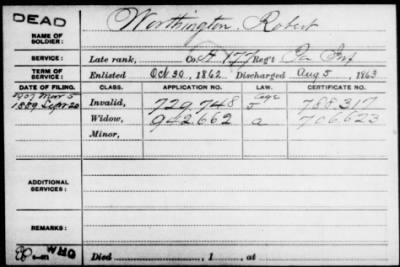 DEAD
NAME OF SOLDIER: Worthington, Robert
SERVICE: Late rank, Co. A 177 Reg't Pa Inf
TERM OF SERVICE: Enlisted Oct 30, 1862 Discharged Aug 5, 1863
DATE OF FILING. CLASS. APPLICATION NO. LAW. CERTIFICATE NO.
1907 Mar 5 Invalid, 729.748 788.317
1889 Sept 20 Widow, 942.662 a 706.623
Minor,
ADDITIONAL SERVICES:
REMARKS:
Died , 1 , at